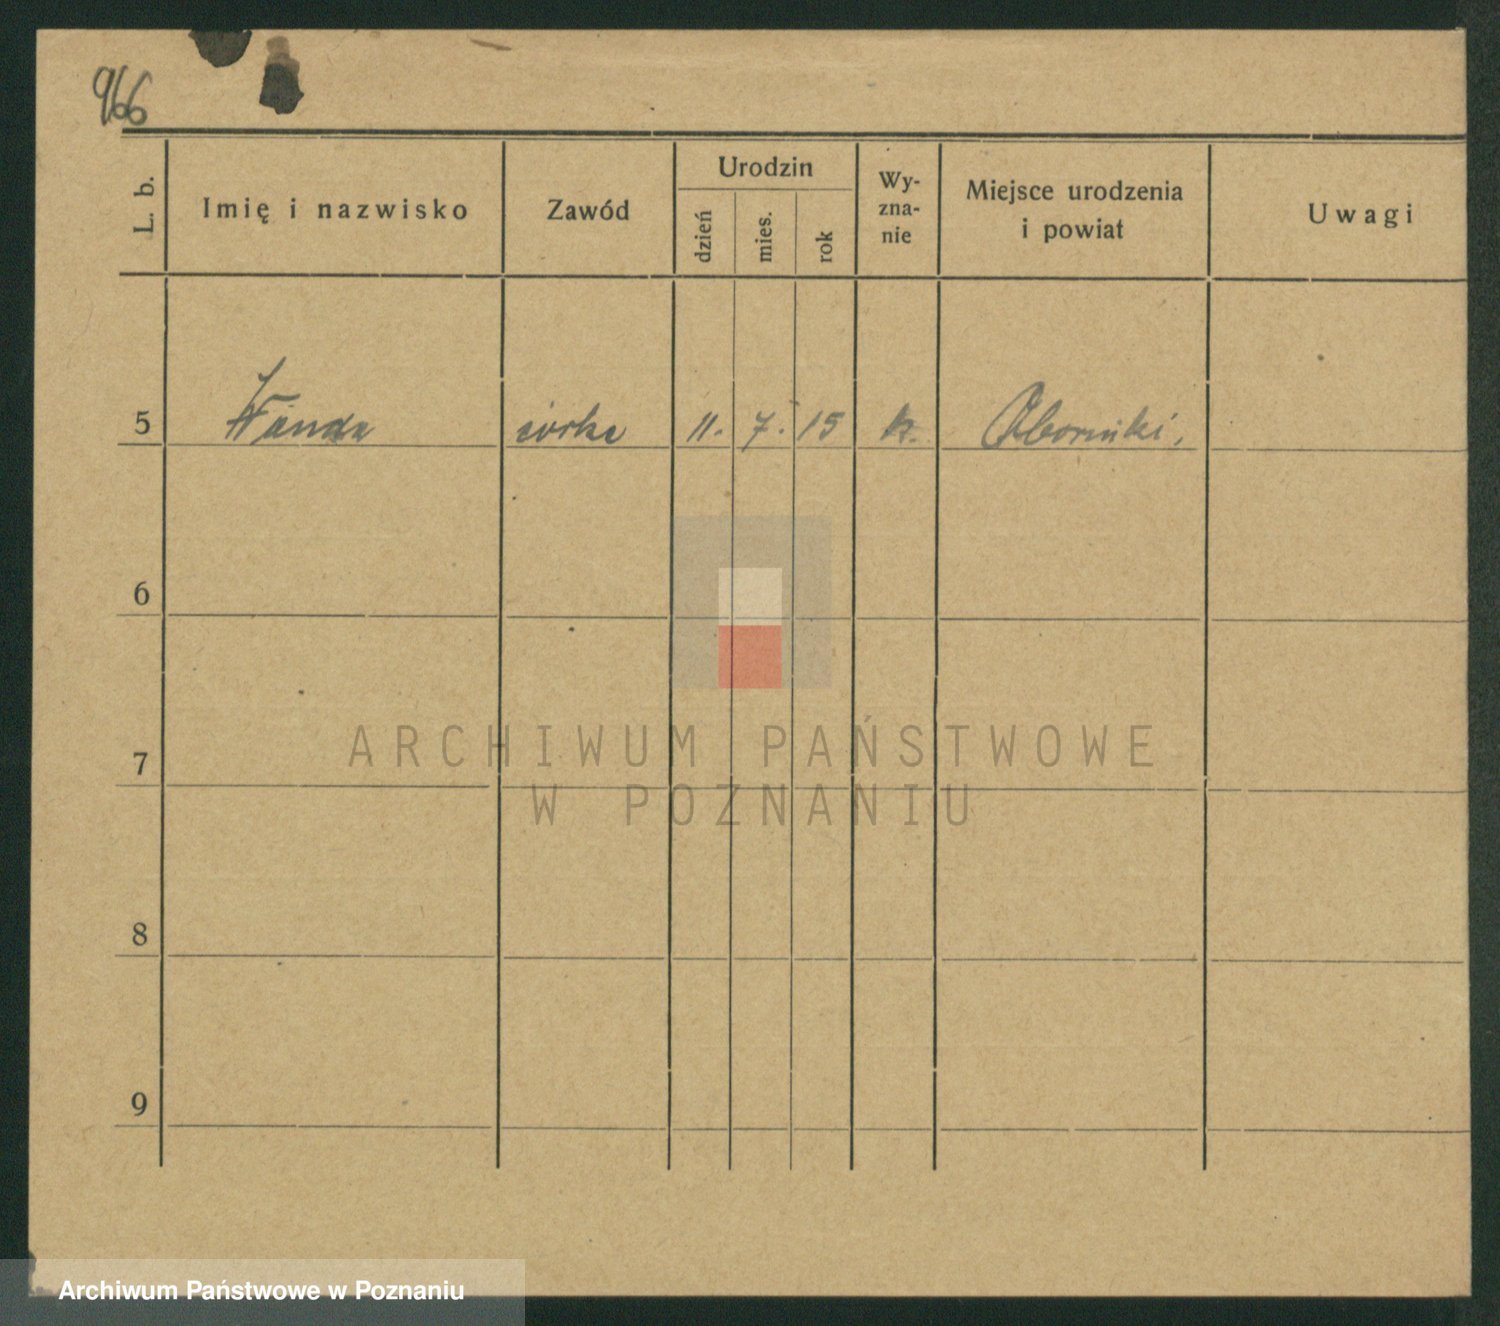 966
L. b. Imię i nazwisko Zawód Urodzin dzień mies. rok Wy-zna-nie Miejsce urodzenia i powiat Uwagi
5 Wanda córka 11. 7. 15 k. Oborniki,
6
7
ARCHIWUM PAŃSTWOWE
W POZNANIU
8
9
Archiwum Państwowe w Poznaniu